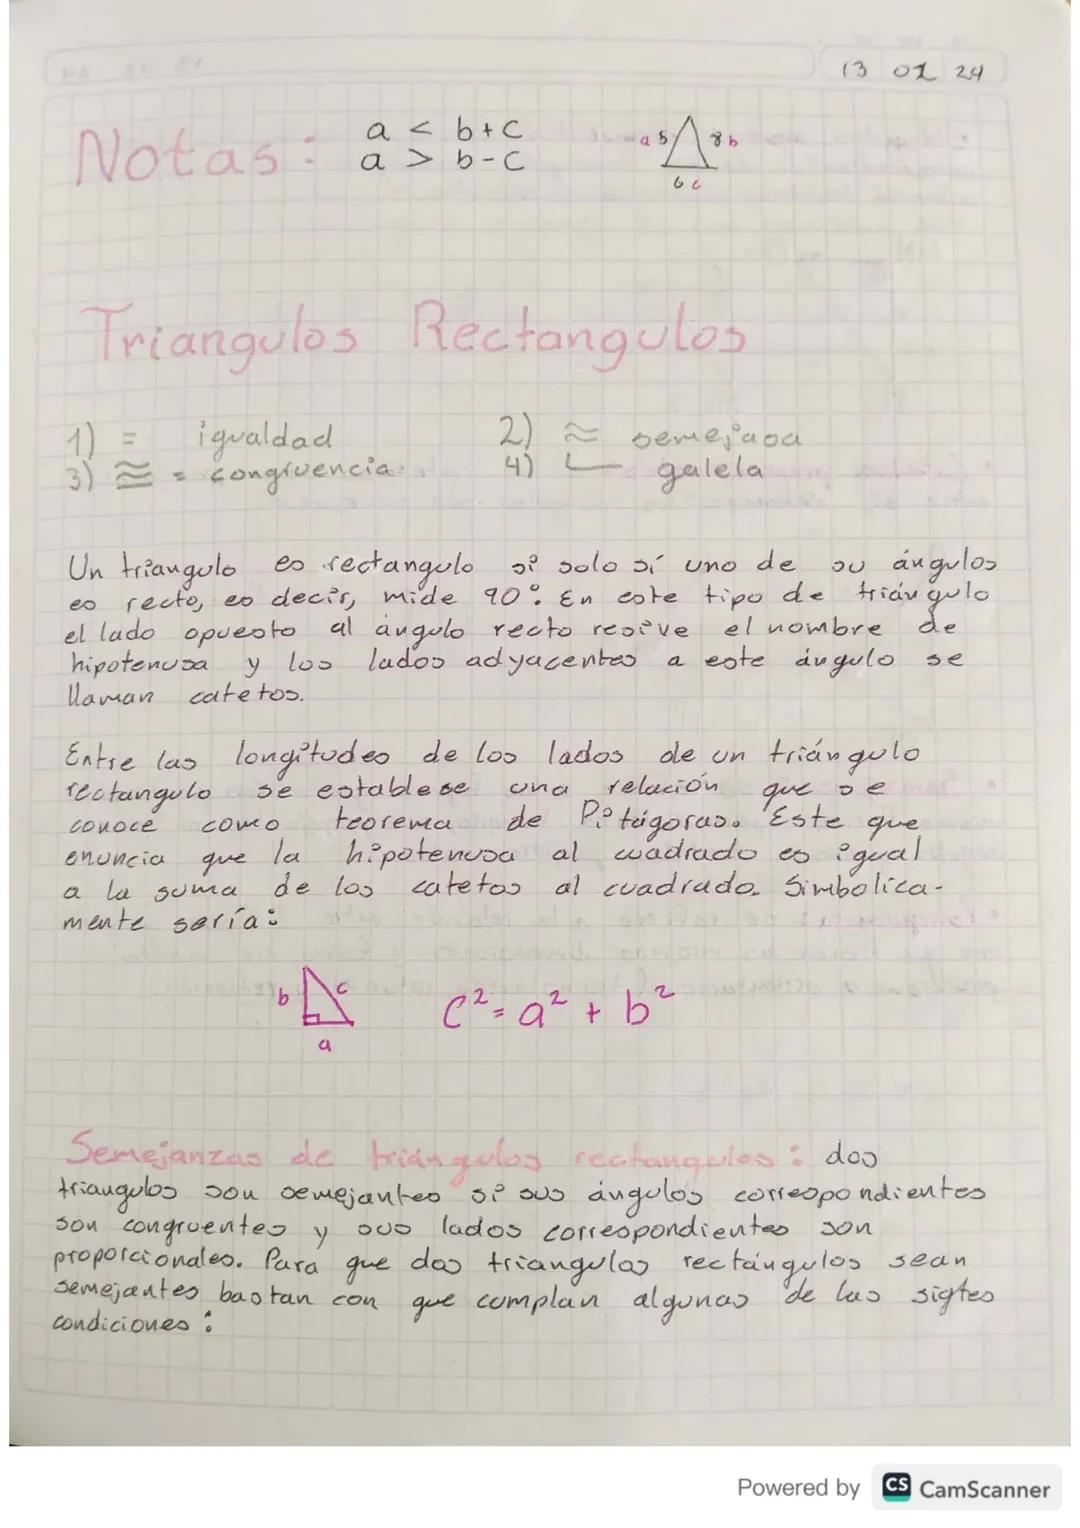 13 02 24
Notas: a < b+c
a > b-c
a 5 8 b
6 c
Triangulos Rectangulos
1) = igualdad 2) ≈ semejasa
3) ≅ = congruencia 4) galela
Un triangulo es rectangulo si solo sí uno de su ángulos
es recto, es decir, mide 90°. En este tipo de triángulo
el lado opuesto al ángulo recto resive el nombre de
hipotenusa y los lados adyacentes a este ángulo se
llaman catetos.
Entre las longitudes de los lados de un triángulo
rectangulo se establese una relación que se
conoce como teorema de Pitágoras. Este que
enuncia que la hipotenusa al cuadrado es igual
a la suma de los catetos al cuadrado. Simbolica-
mente sería:
b c c² = a² + b²
a
Semejanzas de triángulos rectangulos: dos
triangulos son semejantes si sus ángulos correspondientes
son congruentes y sus lados correspondientes son
proporcionales. Para que dos triangulos rectángulos sean
semejantes bastan con que cumplan algunas de las sigtes
condiciones:
Powered by CS CamScanner